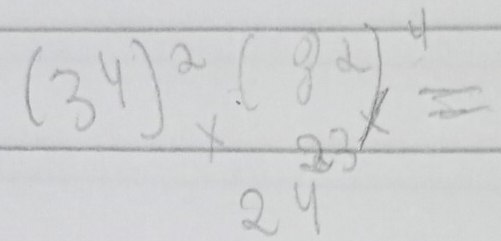 (3⁴)² × (8²)⁴ × =
23
24